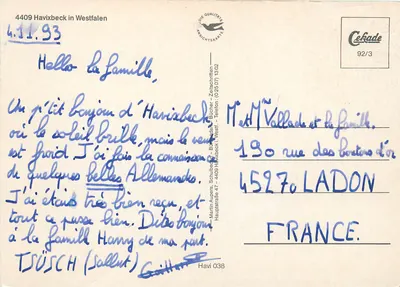 4409 Havixbeck in Westfalen
4.11.93
Hello la famille,
Un p'tit bonjour d'Havixbeck
où le soleil brille, mais le vent
est froid. J'ai fais la connaissance
de quelques belles Allemandes.
J'ai étais très bien reçu, et
tout ce passe bien. Dites bonjour
à la famille Harry de ma part.
TSÜSCH (Sallut)
Cekade
92/3
M et Mme Vallade et la famille,
190 rue des boutons d'or
45270 LADON
FRANCE.
Havi 038